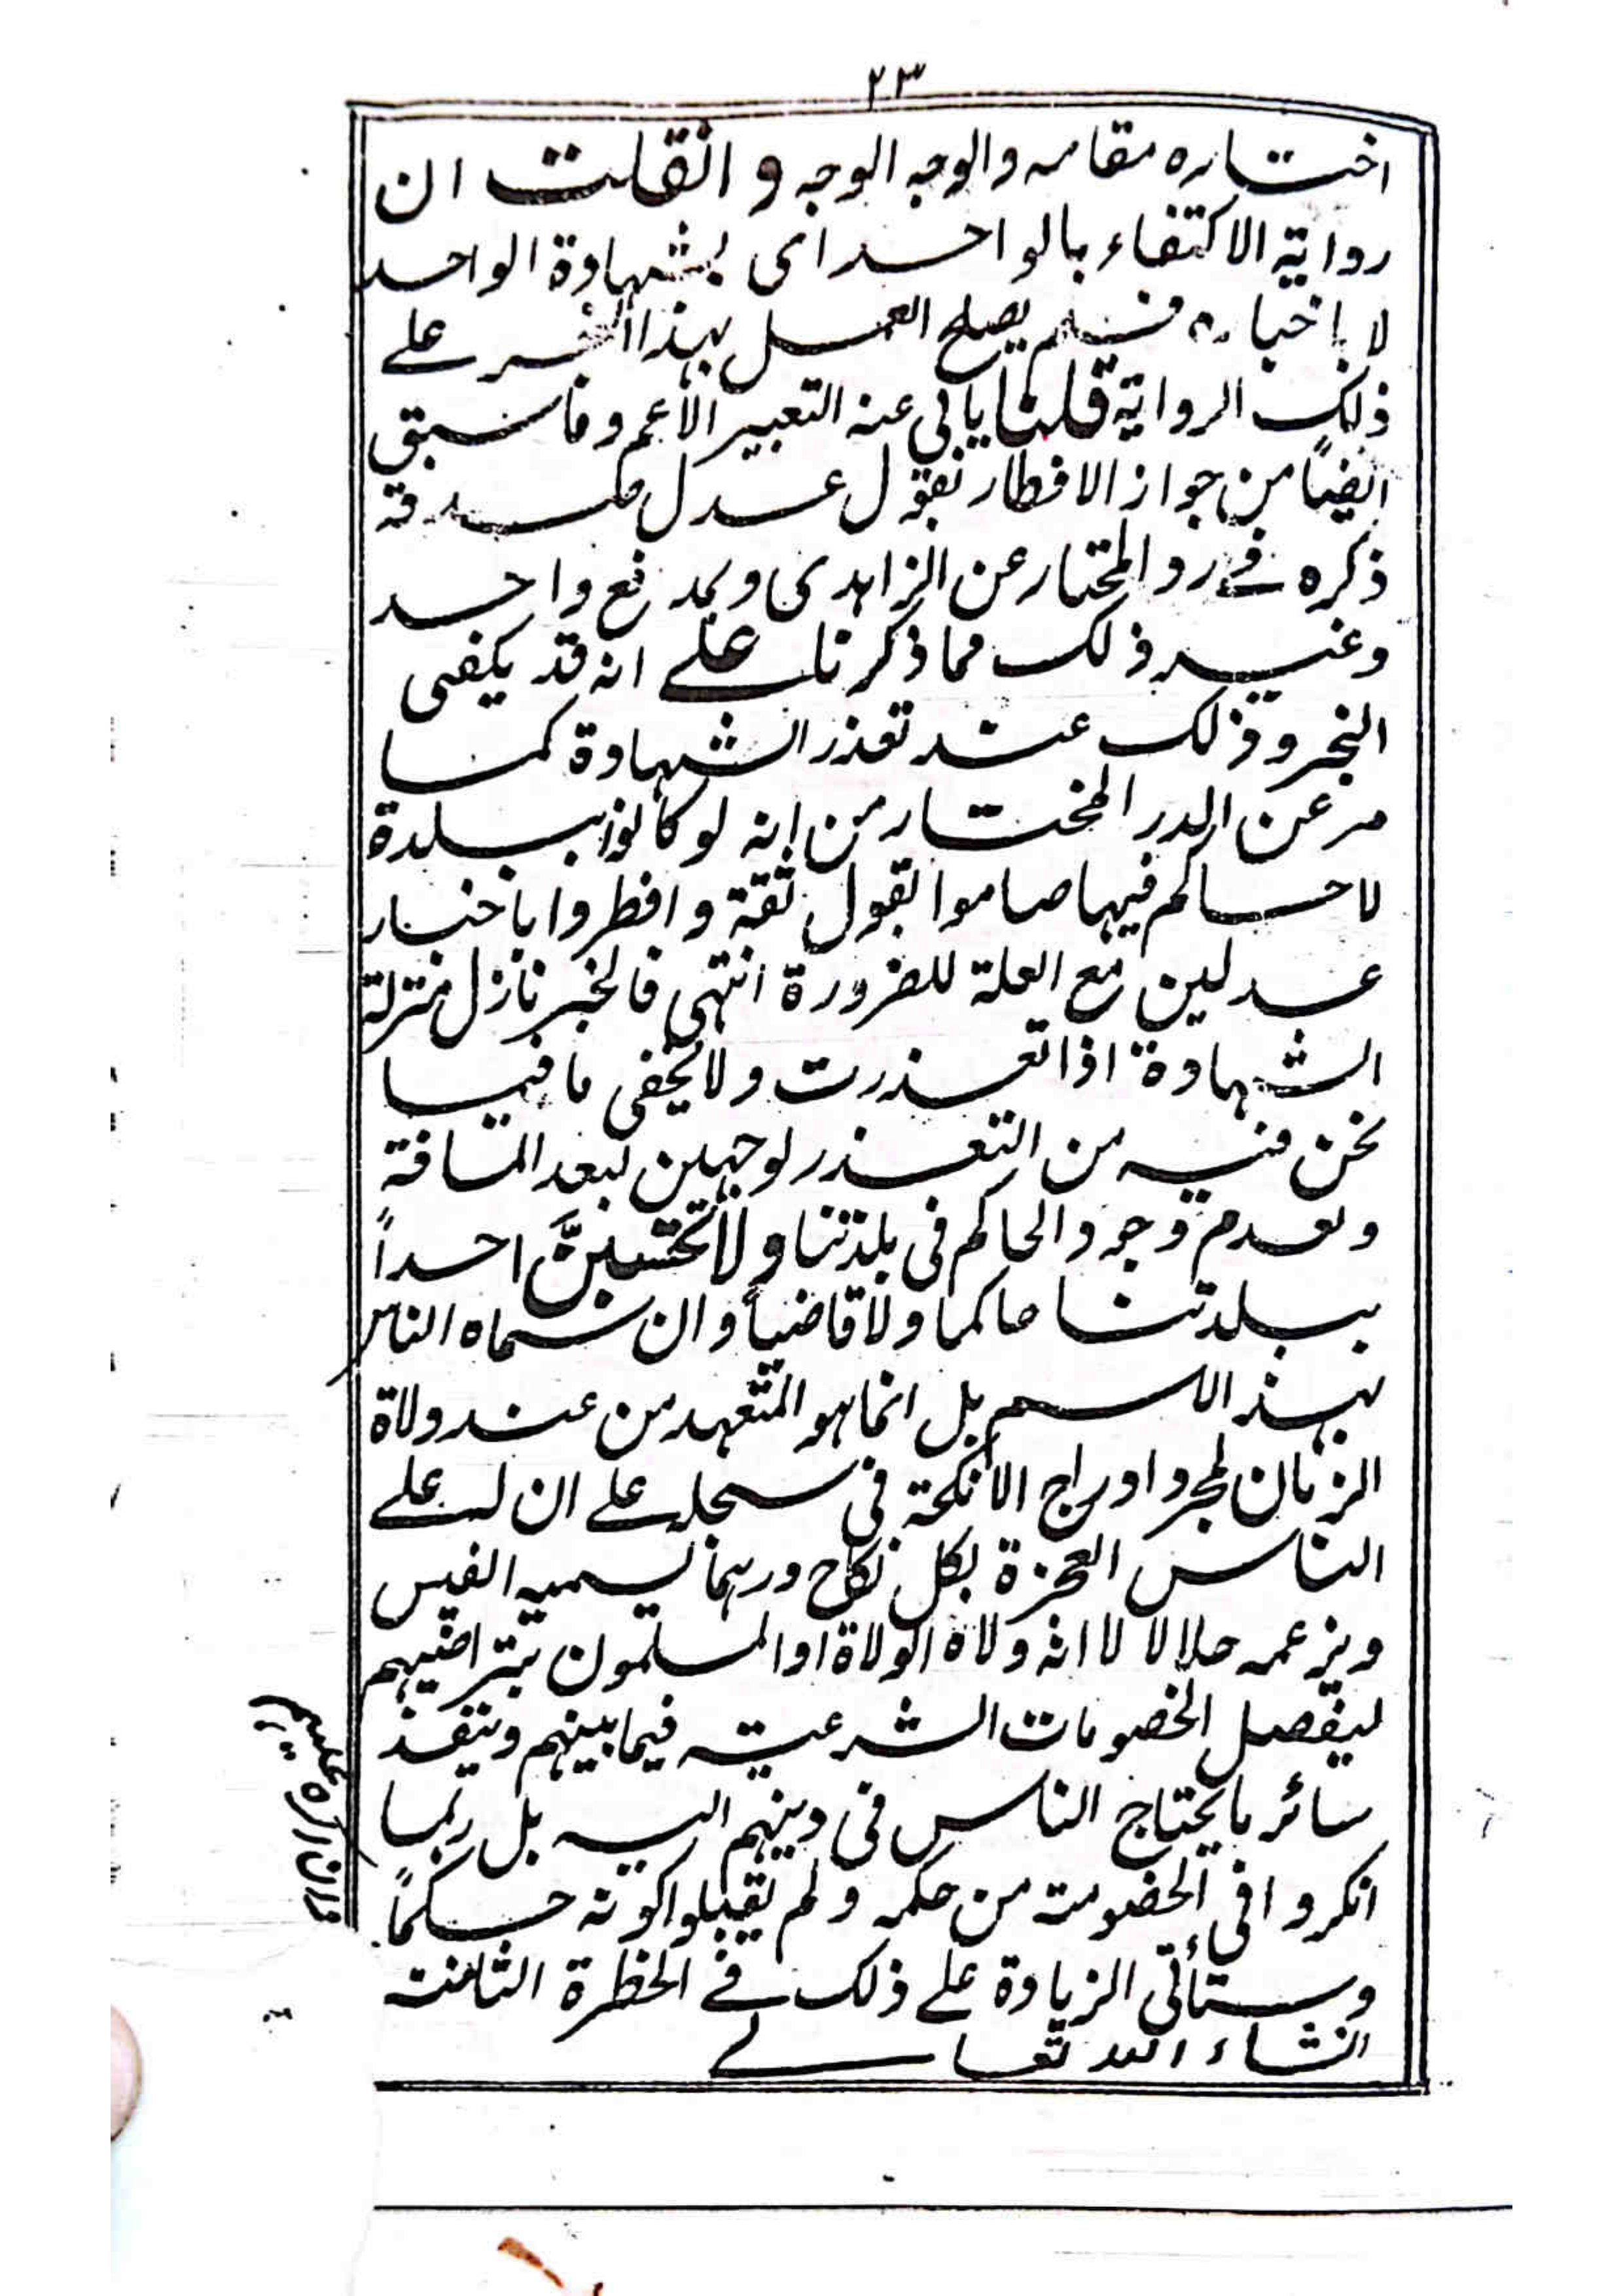 ٢٣
اختاره مقامه والوجه الوجه و انقلت ان
رواية الاكتفاء بالواحد اى بشهادة الواحد
لا باخباره فلم يصلح العمل بهذا الخبر على
ذلك الرواية قلنا يابى عنه التعبير الاعم وما سبق
ايضاً من جواز الافطار بقول عدل صدقه
ذكره فى رد المحتار عن الزاهدى وبمدفع واحد
وغير ذلك مما ذكرنا على انه قد يكفى
الخبر وذلك عند تعذر الشهادة كما
مر عن الدر المختار من انه لو كانوا ببلدة
لا حاكم فيها صاموا بقول ثقة وافطروا باخبار
عدلين مع العلة للضرورة انتهى فالخبر نازل منزلة
الشهادة اذا تعذرت ولا يخفى ما فيما
نحن فيه من التعذر لوجهين لبعد المسافة
وبعدم وجود الحاكم فى بلدتنا ولا تحسبنَّ احداً
ببلدتنا حاكما ولا قاضياً وان سماه الناس
بهذ الاسم بل انما هو المتعهد من عند ولاة
الزمان لمجرد ادراج الانكحة فى سجله على ان له على
الناس العجزة بكل نكاح درهما يسميه الفيس
ويزعمه حلالا لا انه ولاه الولاة او المسلمون بتراضيهم
ليفصل الخصومات الشرعية فيما بينهم وينفذ
سائر ما يحتاج الناس فى دينهم اليه بل ربما
انكروا فى الخصومة من حكمه ولم يقبلوا كونه حكماً
وستأتى الزيادة على ذلك فى الخطرة الثامنة
انشاء الله تعالے